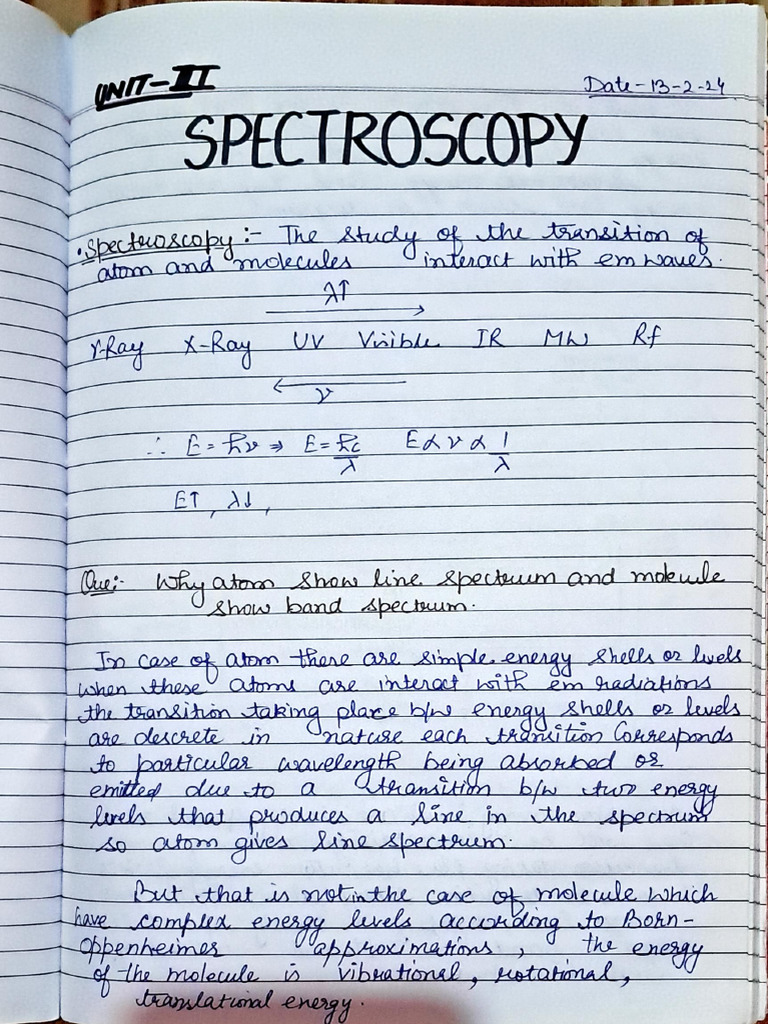 UNIT-III
Date-13-2-24
SPECTROSCOPY
• Spectroscopy:- The study of the transition of
atom and molecules interact with em waves.
λ↑
γ-Ray X-Ray UV Visible IR MW Rf
ν
∴ E = hν ⇒ E = hc/λ E ∝ ν ∝ 1/λ
E↑, λ↓,
Que:- Why atom show line spectrum and molecule
show band spectrum.
In case of atom there are simple energy shells or levels
when these atoms are interact with em radiations
the transition taking place b/w energy shells or levels
are descrete in nature each transition Corresponds
to particular wavelength being absorbed or
emitted due to a transition b/w two energy
levels that produces a line in the spectrum
so atom gives line spectrum.
But that is not in the case of molecule which
have complex energy levels according to Born-
oppenheimer approximations, the energy
of the molecule is vibrational, rotational,
translational energy.